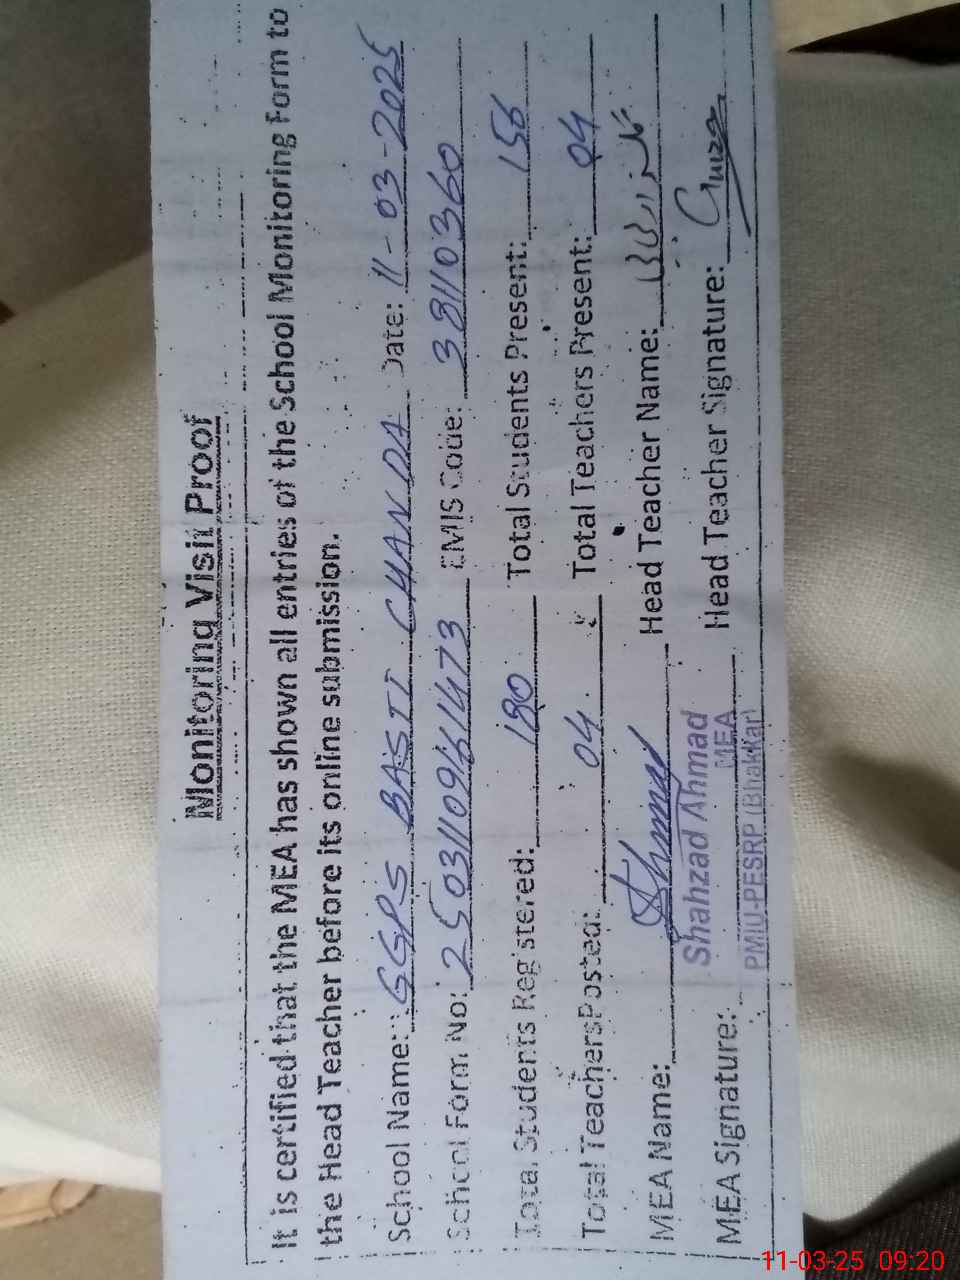 Monitoring Visit Proof
It is certified that the MEA has shown all entries of the School Monitoring Form to
the Head Teacher before its online submission.
School Name: GGPS BASTI CHANDA Date: 11-03-2025
School Form No: EMIS Code: 38110360
Total Students Registered: 180 Total Students Present: 156
Total Teachers Posted: 04 Total Teachers Present: 04
MEA Name: Ahmad Head Teacher Name:
Shahzad Ahmad
MEA
MEA Signature: Head Teacher Signature:
PMIU-PESRP (Bhakkar)
11-03-25 09:20